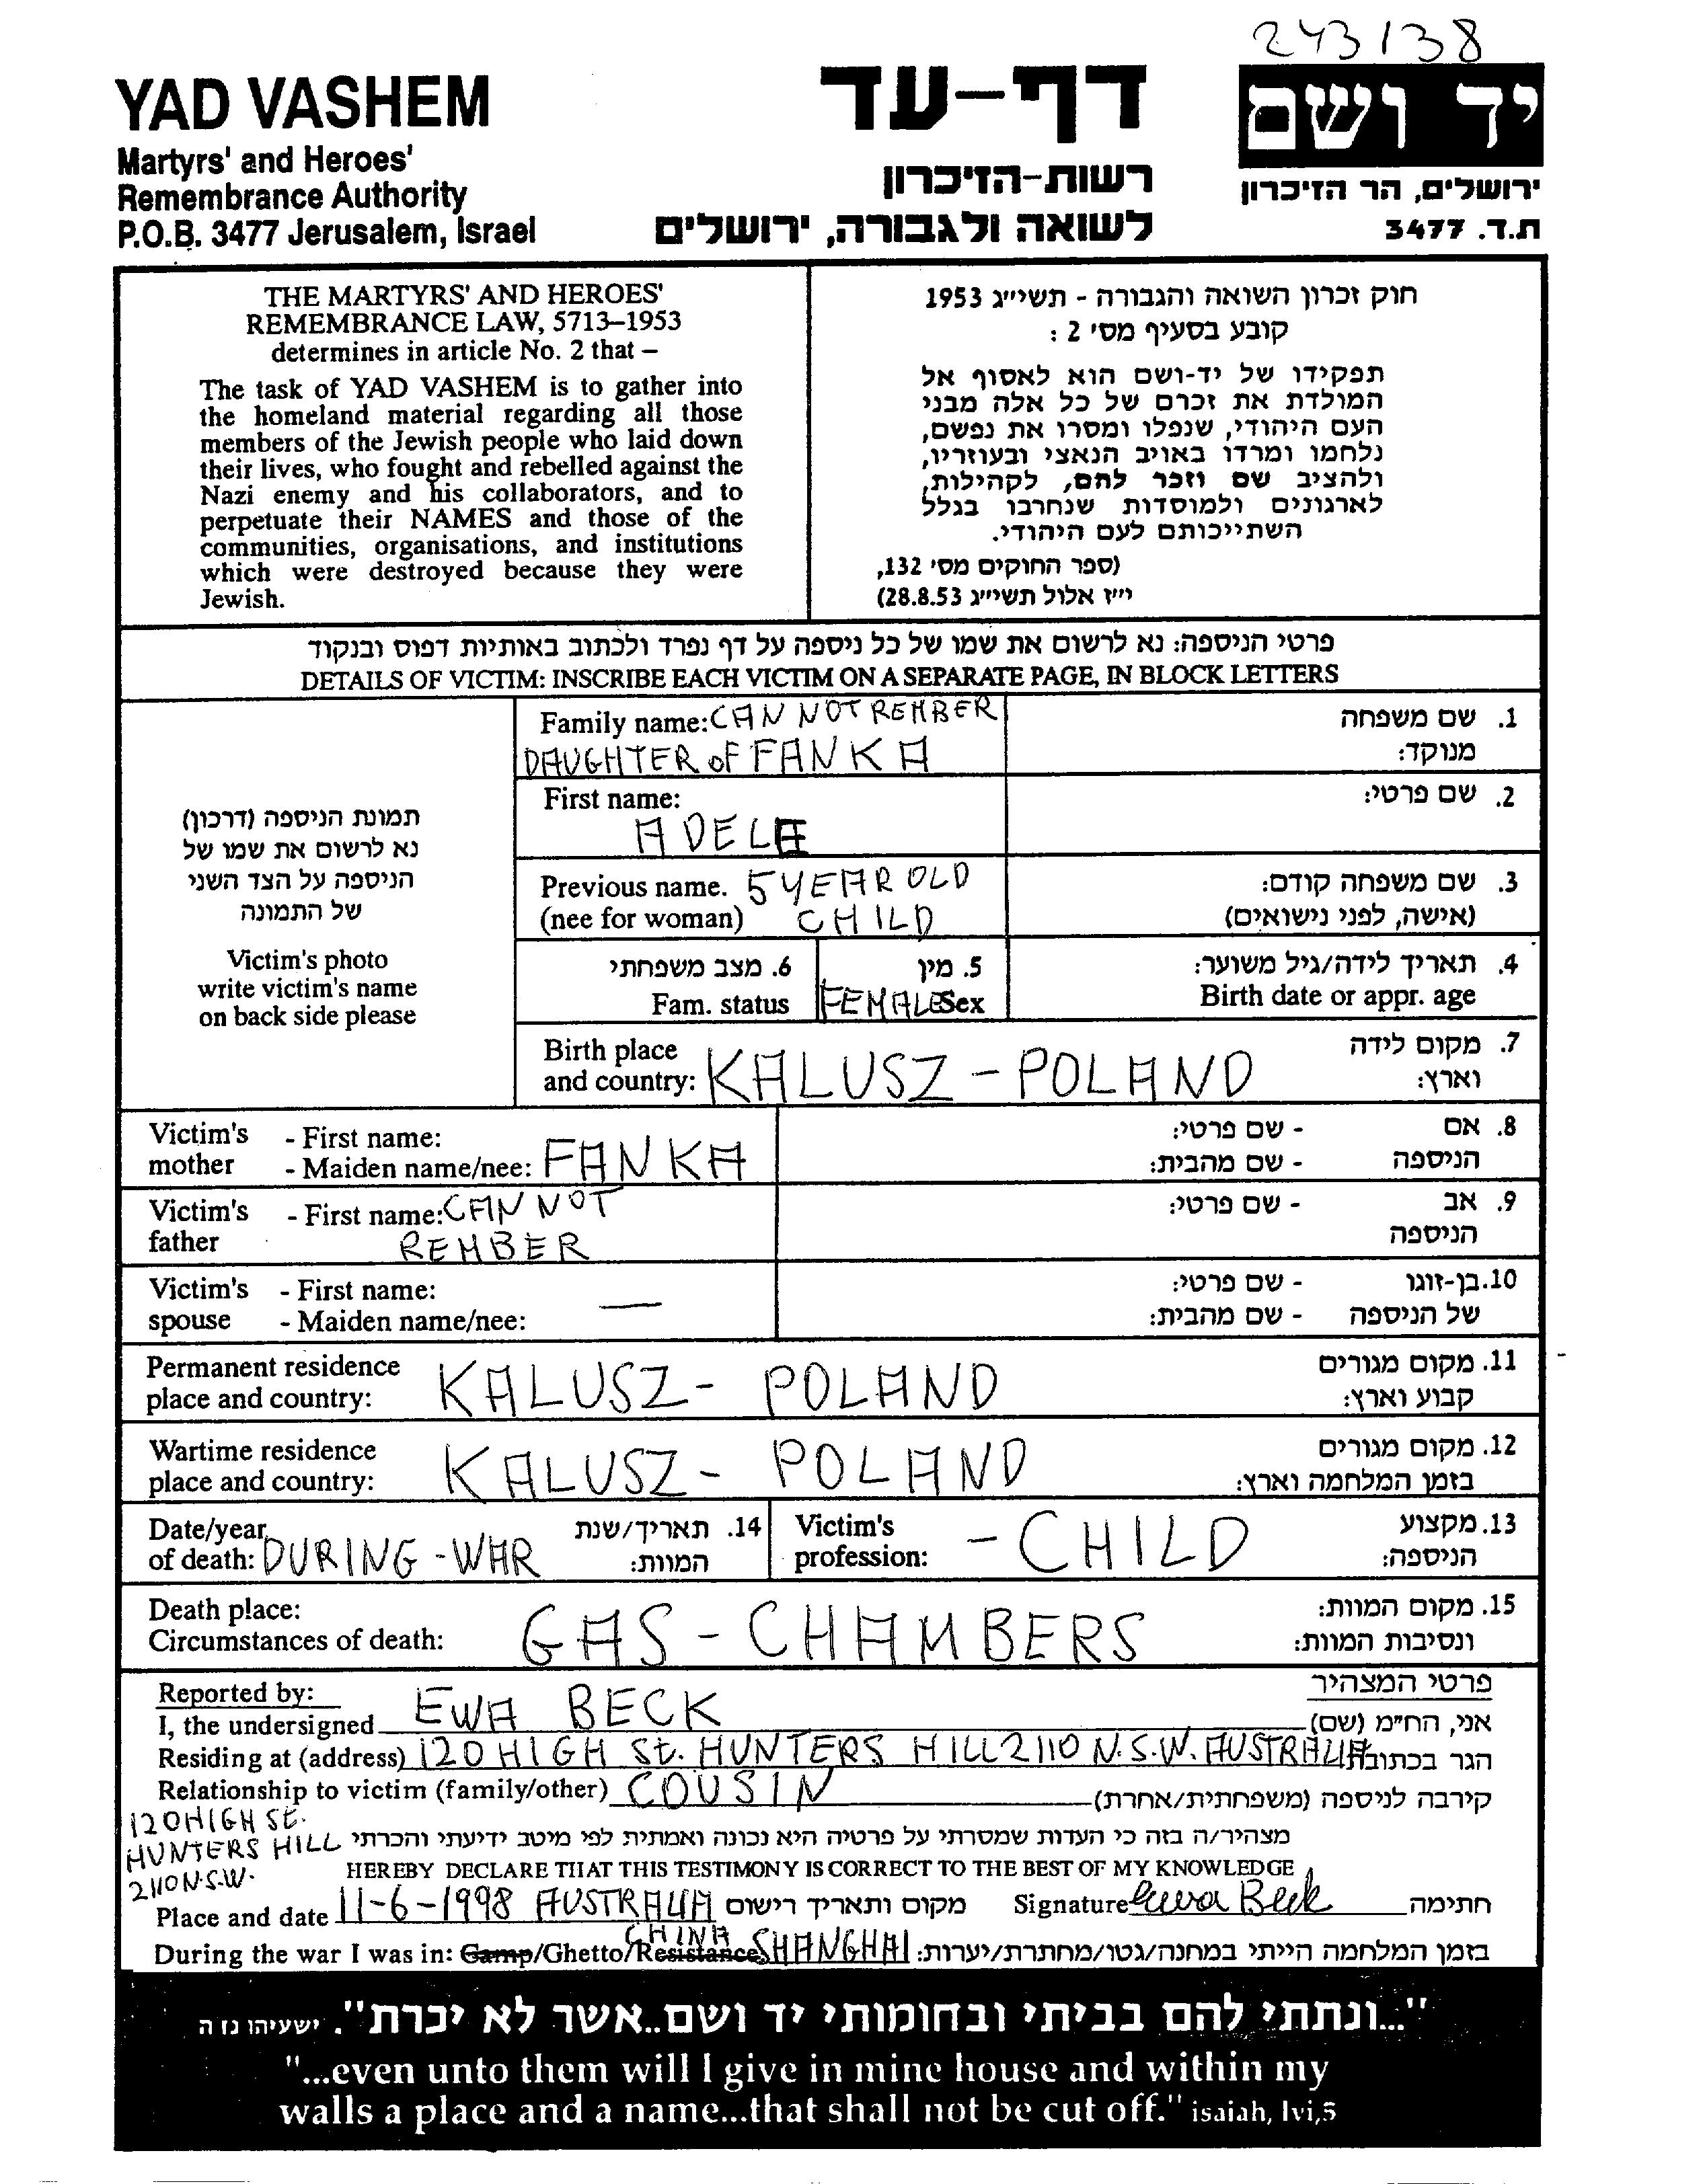 243138
YAD VASHEM
Martyrs' and Heroes'
Remembrance Authority
P.O.B. 3477 Jerusalem, Israel
דף-עד
רשות-הזיכרון
לשואה ולגבורה, ירושלים
יד ושם
ירושלים, הר הזיכרון
ת.ד. 3477
THE MARTYRS' AND HEROES'
REMEMBRANCE LAW, 5713–1953
determines in article No. 2 that –
The task of YAD VASHEM is to gather into
the homeland material regarding all those
members of the Jewish people who laid down
their lives, who fought and rebelled against the
Nazi enemy and his collaborators, and to
perpetuate their NAMES and those of the
communities, organisations, and institutions
which were destroyed because they were
Jewish.
חוק זכרון השואה והגבורה - תשי״ג 1953
קובע בסעיף מס׳ 2 :
תפקידו של יד-ושם הוא לאסוף אל
המולדת את זכרם של כל אלה מבני
העם היהודי, שנפלו ומסרו את נפשם,
נלחמו ומרדו באויב הנאצי ובעוזריו,
ולהציב שם וזכר להם, לקהילות,
לארגונים ולמוסדות שנחרבו בגלל
השתייכותם לעם היהודי.
(ספר החוקים מס׳ 132,
י״ז אלול תשי״ג 28.8.53)
פרטי הניספה: נא לרשום את שמו של כל ניספה על דף נפרד ולכתוב באותיות דפוס ובנקוד
DETAILS OF VICTIM: INSCRIBE EACH VICTIM ON A SEPARATE PAGE, IN BLOCK LETTERS
תמונת הניספה (דרכון)
נא לרשום את שמו של
הניספה על הצד השני
של התמונה
Victim's photo
write victim's name
on back side please
Family name: CAN NOT REMBER 1. שם משפחה
DAUGHTER OF FANKA מנוקד:
First name: 2. שם פרטי:
ADELA
Previous name. 5 YEAR OLD 3. שם משפחה קודם:
(nee for woman) CHILD (אישה, לפני נישואים)
6. מצב משפחתי 5. מין 4. תאריך לידה/גיל משוער:
Fam. status FEMALE Sex Birth date or appr. age
Birth place 7. מקום לידה
and country: KALUSZ - POLAND וארץ:
Victim's - First name: - שם פרטי: 8. אם
mother - Maiden name/nee: FANKA - שם מהבית: הניספה
Victim's - First name: CAN NOT - שם פרטי: 9. אב
father REMBER הניספה
Victim's - First name: - שם פרטי: 10. בן-זוגו
spouse - Maiden name/nee: — - שם מהבית: של הניספה
Permanent residence 11. מקום מגורים
place and country: KALUSZ - POLAND קבוע וארץ:
Wartime residence 12. מקום מגורים
place and country: KALUSZ - POLAND בזמן המלחמה וארץ:
Date/year 14. תאריך/שנת Victim's 13. מקצוע
of death: DURING - WAR המוות: profession: - CHILD הניספה:
Death place: 15. מקום המוות:
Circumstances of death: GAS - CHAMBERS ונסיבות המוות:
Reported by: פרטי המצהיר
I, the undersigned EWA BECK אני, הח״מ (שם)
Residing at (address) 120 HIGH St. HUNTERS HILL 2110 N.S.W. AUSTRALIA הגר בכתובת
Relationship to victim (family/other) COUSIN קירבה לניספה (משפחתית/אחרת)
120 HIGH St.
HUNTERS HILL
2110 N.S.W.
מצהיר/ה בזה כי העדות שמסרתי על פרטיה היא נכונה ואמתית לפי מיטב ידיעתי והכרתי
HEREBY DECLARE THAT THIS TESTIMONY IS CORRECT TO THE BEST OF MY KNOWLEDGE
Place and date 11-6-1998 AUSTRALIA מקום ותאריך רישום Signature Ewa Beck חתימה
During the war I was in: Camp/Ghetto/Resistance CHINA SHANGHAI בזמן המלחמה הייתי במחנה/גטו/מחתרת/יערות:
"...ונתתי להם בביתי ובחומותי יד ושם..אשר לא יכרת". ישעיהו נז ה
"...even unto them will I give in mine house and within my
walls a place and a name...that shall not be cut off." isaiah, lvi,5